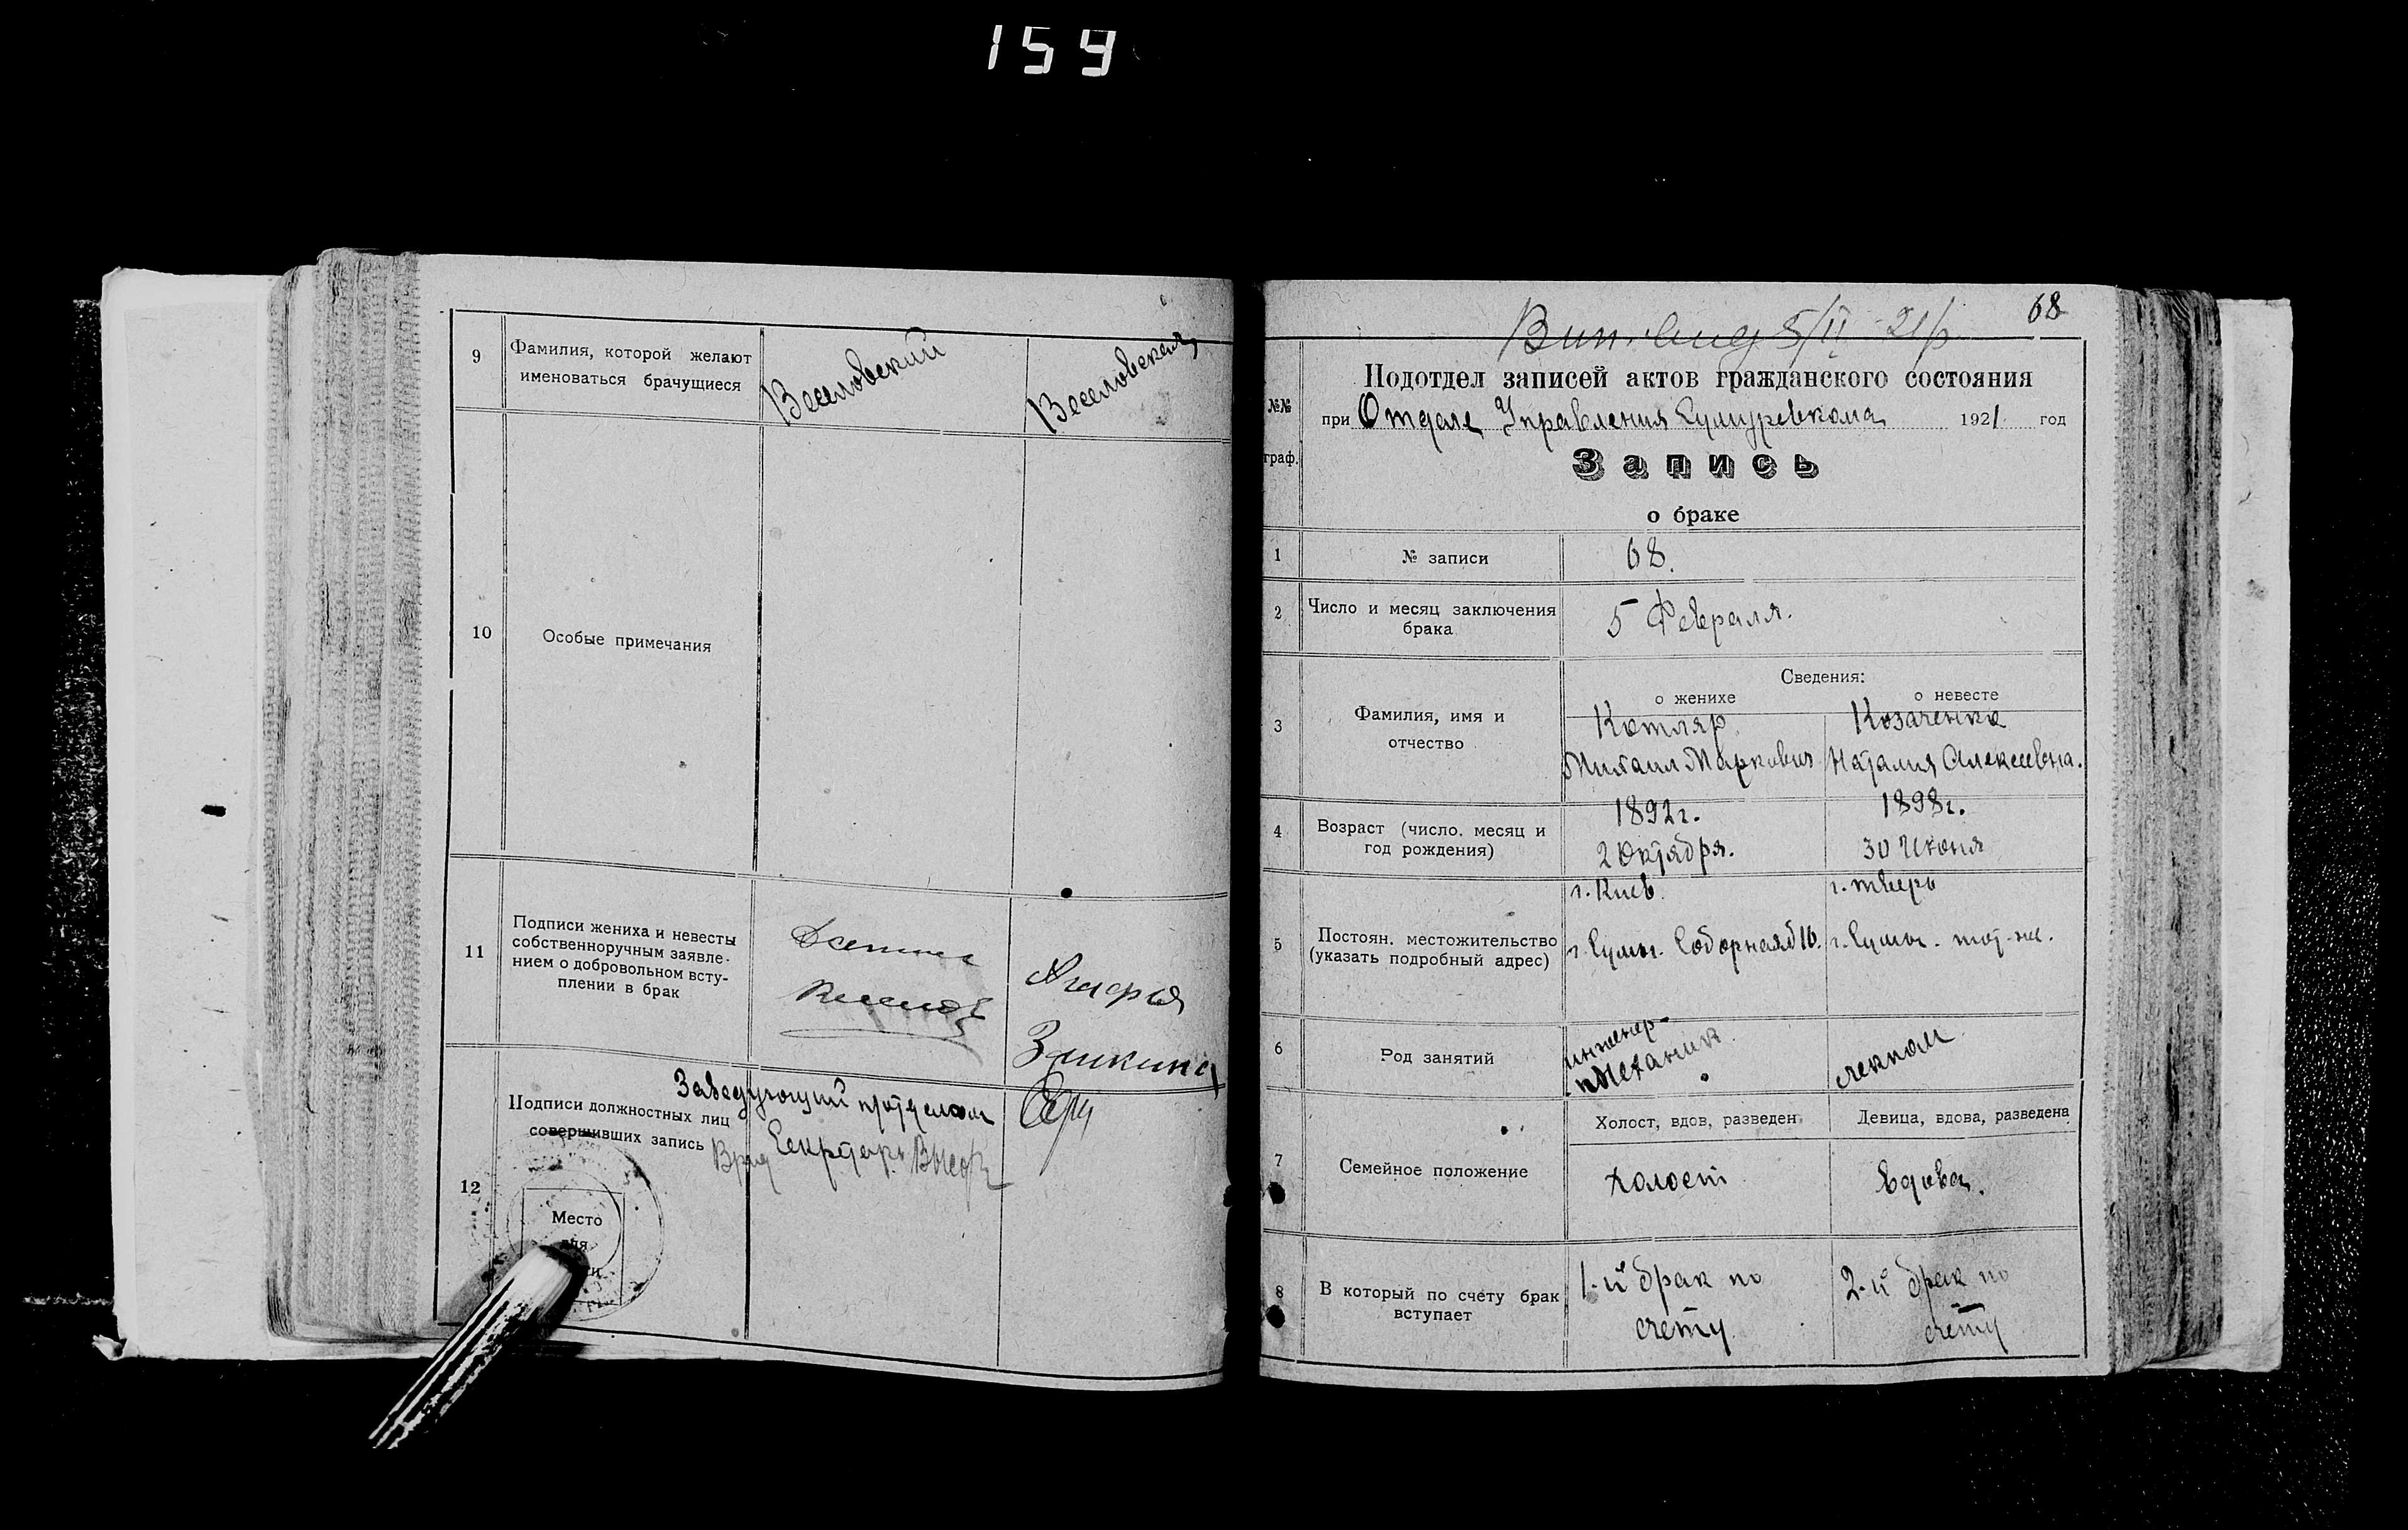 159
9
Фамилия, которой желают
именоваться брачущиеся
Веселовский
Веселовская
10
Особые примечания
11
Подписи жениха и невесты
собственноручным заявле-
нием о добровольном всту-
плении в брак
Агафья
Зикина
12
Подписи должностных лиц
совершивших запись
Заведующий
Секретарь
Место
68
5/II 21р
№№
граф.
Подотдел записей актов гражданского состояния
при Отделе Управления Сумуревкома 1921 год
Запись
о браке
1
№ записи
68.
2
Число и месяц заключения
брака
5 Февраля.
3
Фамилия, имя и
отчество
Сведения:
о женихе
о невесте
Котляр
Михаил Маркович
Козаченко
Наталия Алексеевна.
4
Возраст (число, месяц и
год рождения)
1892г.
2 Октября.
1898г.
30 Июня
5
Постоян. местожительство
(указать подробный адрес)
г. Киев.
г. Сумы. Соборная
г. Тверь
г. Сумы.
6
Род занятий
инженер-
механик
лекпом
7
Семейное положение
Холост, вдов, разведен
Девица, вдова, разведена
холост
вдова.
8
В который по счету брак
вступает
1-й брак по
счету
2-й брак по
счету